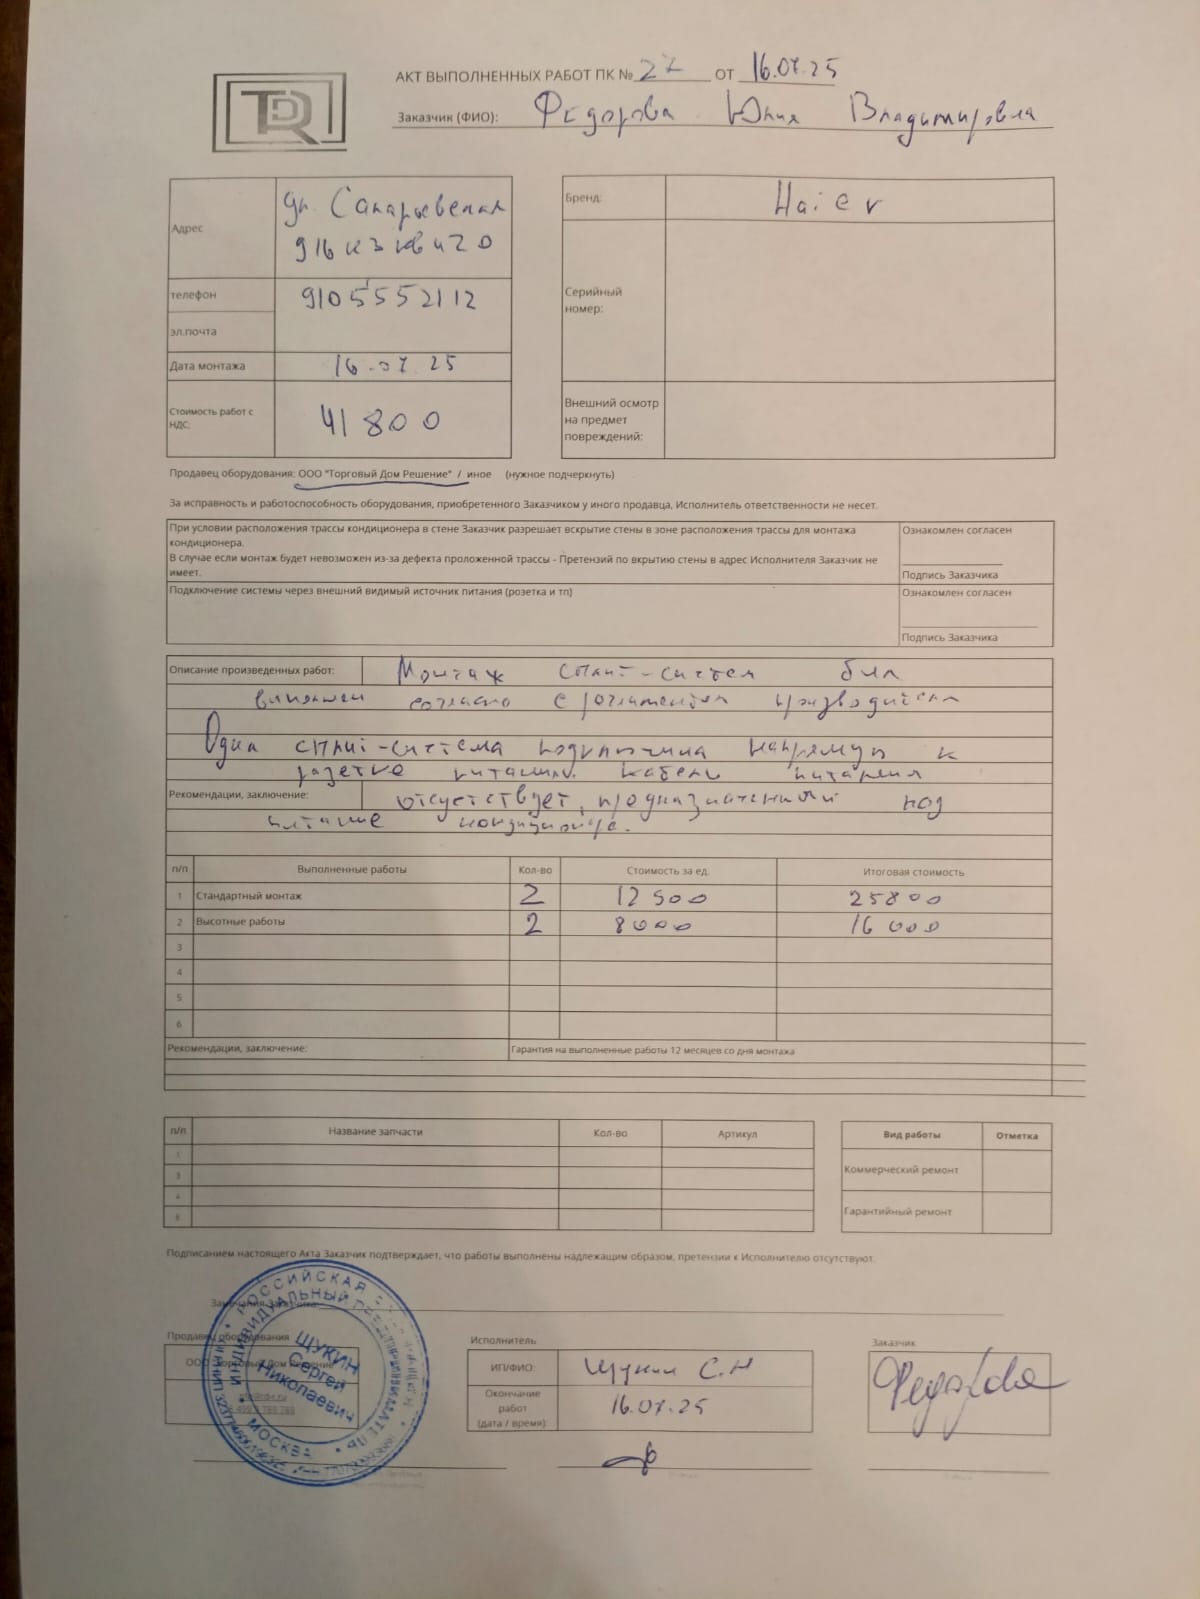 TDR
АКТ ВЫПОЛНЕННЫХ РАБОТ ПК № 27 ОТ 16.07.25
Заказчик (ФИО): Федорова Юлия Владимировна
Адрес
ул.
9/6 к3 кв 420
телефон 9105552112
эл.почта
Дата монтажа 16.07.25
Стоимость работ с НДС: 41 800
Бренд: Haier
Серийный номер:
Внешний осмотр на предмет повреждений:
Продавец оборудования: ООО "Торговый Дом Решение" / иное (нужное подчеркнуть)
За исправность и работоспособность оборудования, приобретенного Заказчиком у иного продавца, Исполнитель ответственности не несет.
При условии расположения трассы кондиционера в стене Заказчик разрешает вскрытие стены в зоне расположения трассы для монтажа
кондиционера.
В случае если монтаж будет невозможен из-за дефекта проложенной трассы - Претензий по вкрытию стены в адрес Исполнителя Заказчик не
имеет.
Ознакомлен согласен
Подпись Заказчика
Подключение системы через внешний видимый источник питания (розетка и тп)
Ознакомлен согласен
Подпись Заказчика
Описание произведенных работ: Монтаж сплит-систем был
согласно с регламентом производителя
Одна сплит-система подключена напрямую к
розетке питания. Кабель питания
Рекомендации, заключение: отсутствует, предназначенный под
питание кондиционера.
п/п Выполненные работы Кол-во Стоимость за ед. Итоговая стоимость
1 Стандартный монтаж 2 12 900 25800
2 Высотные работы 2 8000 16 000
3
4
5
6
Рекомендации, заключение: Гарантия на выполненные работы 12 месяцев со дня монтажа
п/п Название запчасти Кол-во Артикул
1
3
4
Вид работы Отметка
Коммерческий ремонт
Гарантийный ремонт
Подписанием настоящего Акта Заказчик подтверждает, что работы выполнены надлежащим образом, претензии к Исполнителю отсутствуют.
Замечания Заказчика:
Продавец оборудования
ООО "Торговый Дом Решение"
РОССИЙСКАЯ
ИНДИВИДУАЛЬНЫЙ ПРЕДПРИНИМАТЕЛЬ
ЩУКИН
Сергей
Николаевич
МОСКВА
Исполнитель
ИП/ФИО: Щукин С.Н
Окончание работ (дата / время): 16.07.25
Заказчик
Федорова